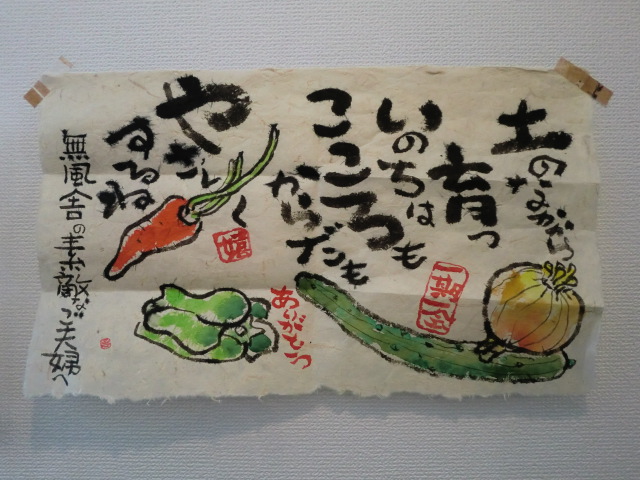 土のなかから
育つ
いのちは
こころも
からだも
やさしく
するね
無風舎の素敵なご夫婦へ
ありがとう
一期一会